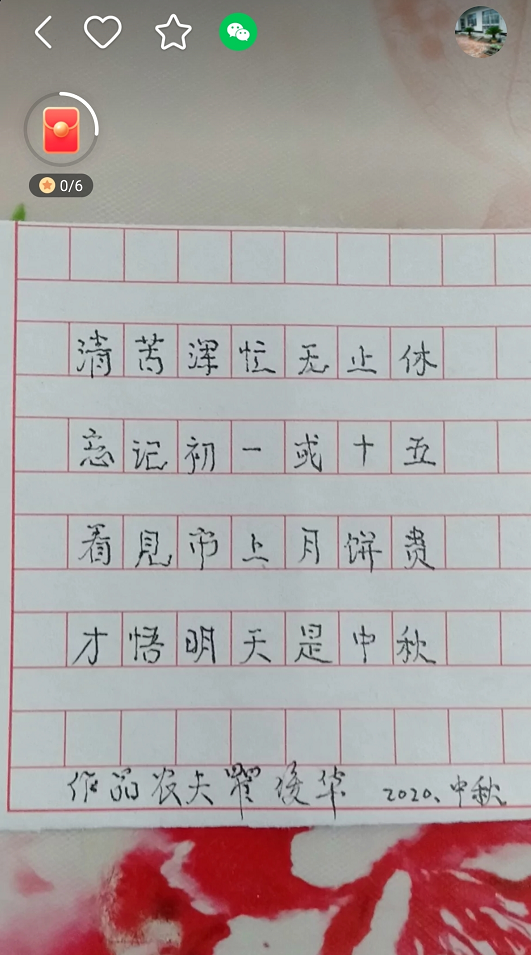 0/6
清苦浑忙无止休
忘记初一或十五
看见市上月饼贵
才悟明天是中秋
作品农夫瞿俊华 2020、中秋